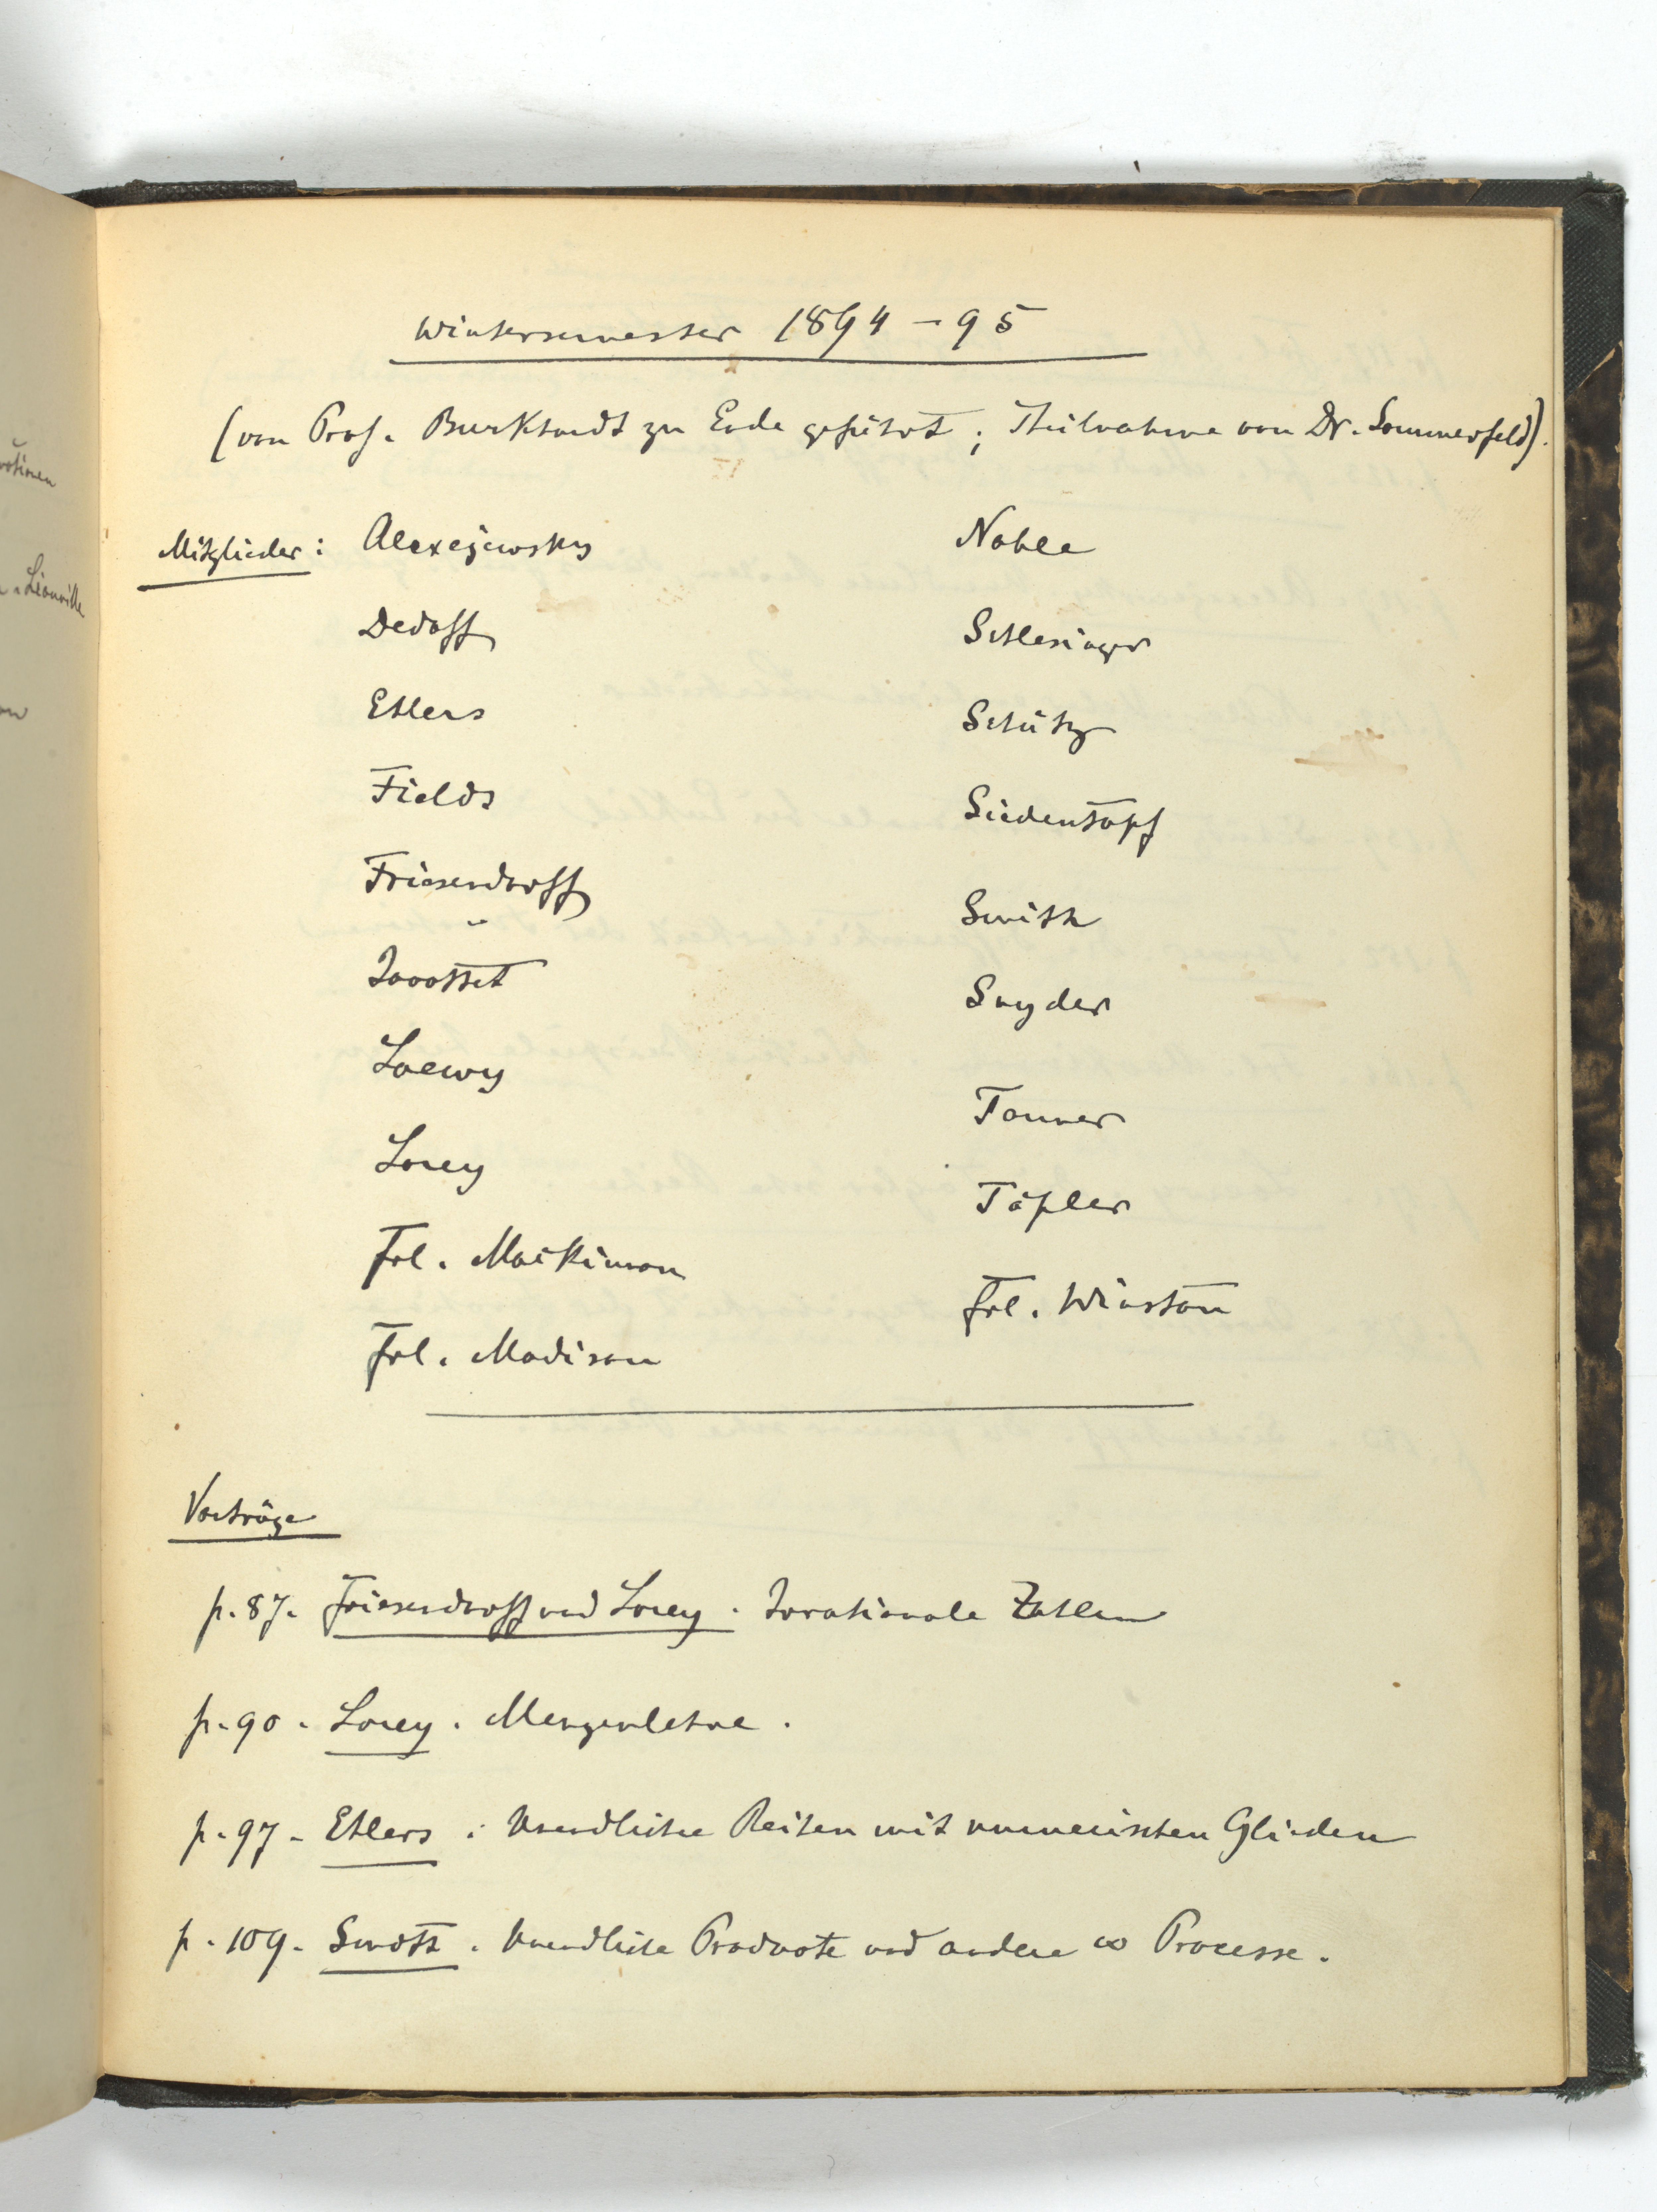 Wintersemester 1894–95
(von Prof. Burkhardt zu Ende geführt; Theilnahme von Dr. Sommerfeld).
Mitglieder: Alexejewsky
Dedoff
Ehlers
Fields
Friesendorff
Jaroschet
Loewy
Lorey
Frl. Mackinnon
Frl. Madison
Noble
Schlesinger
Schütz
Siedentopf
Smith
Snyder
Tanner
Töpler
Frl. Winston
Vorträge
p. 87. Friesendorff und Lorey. Irrationale Zahlen
p. 90. Lorey. Mengenlehre.
p. 97. Ehlers: Unendliche Reihen mit numerischen Gliedern
p. 109. Smith. Unendliche Producte und andere ∞ Processe.
Liouville